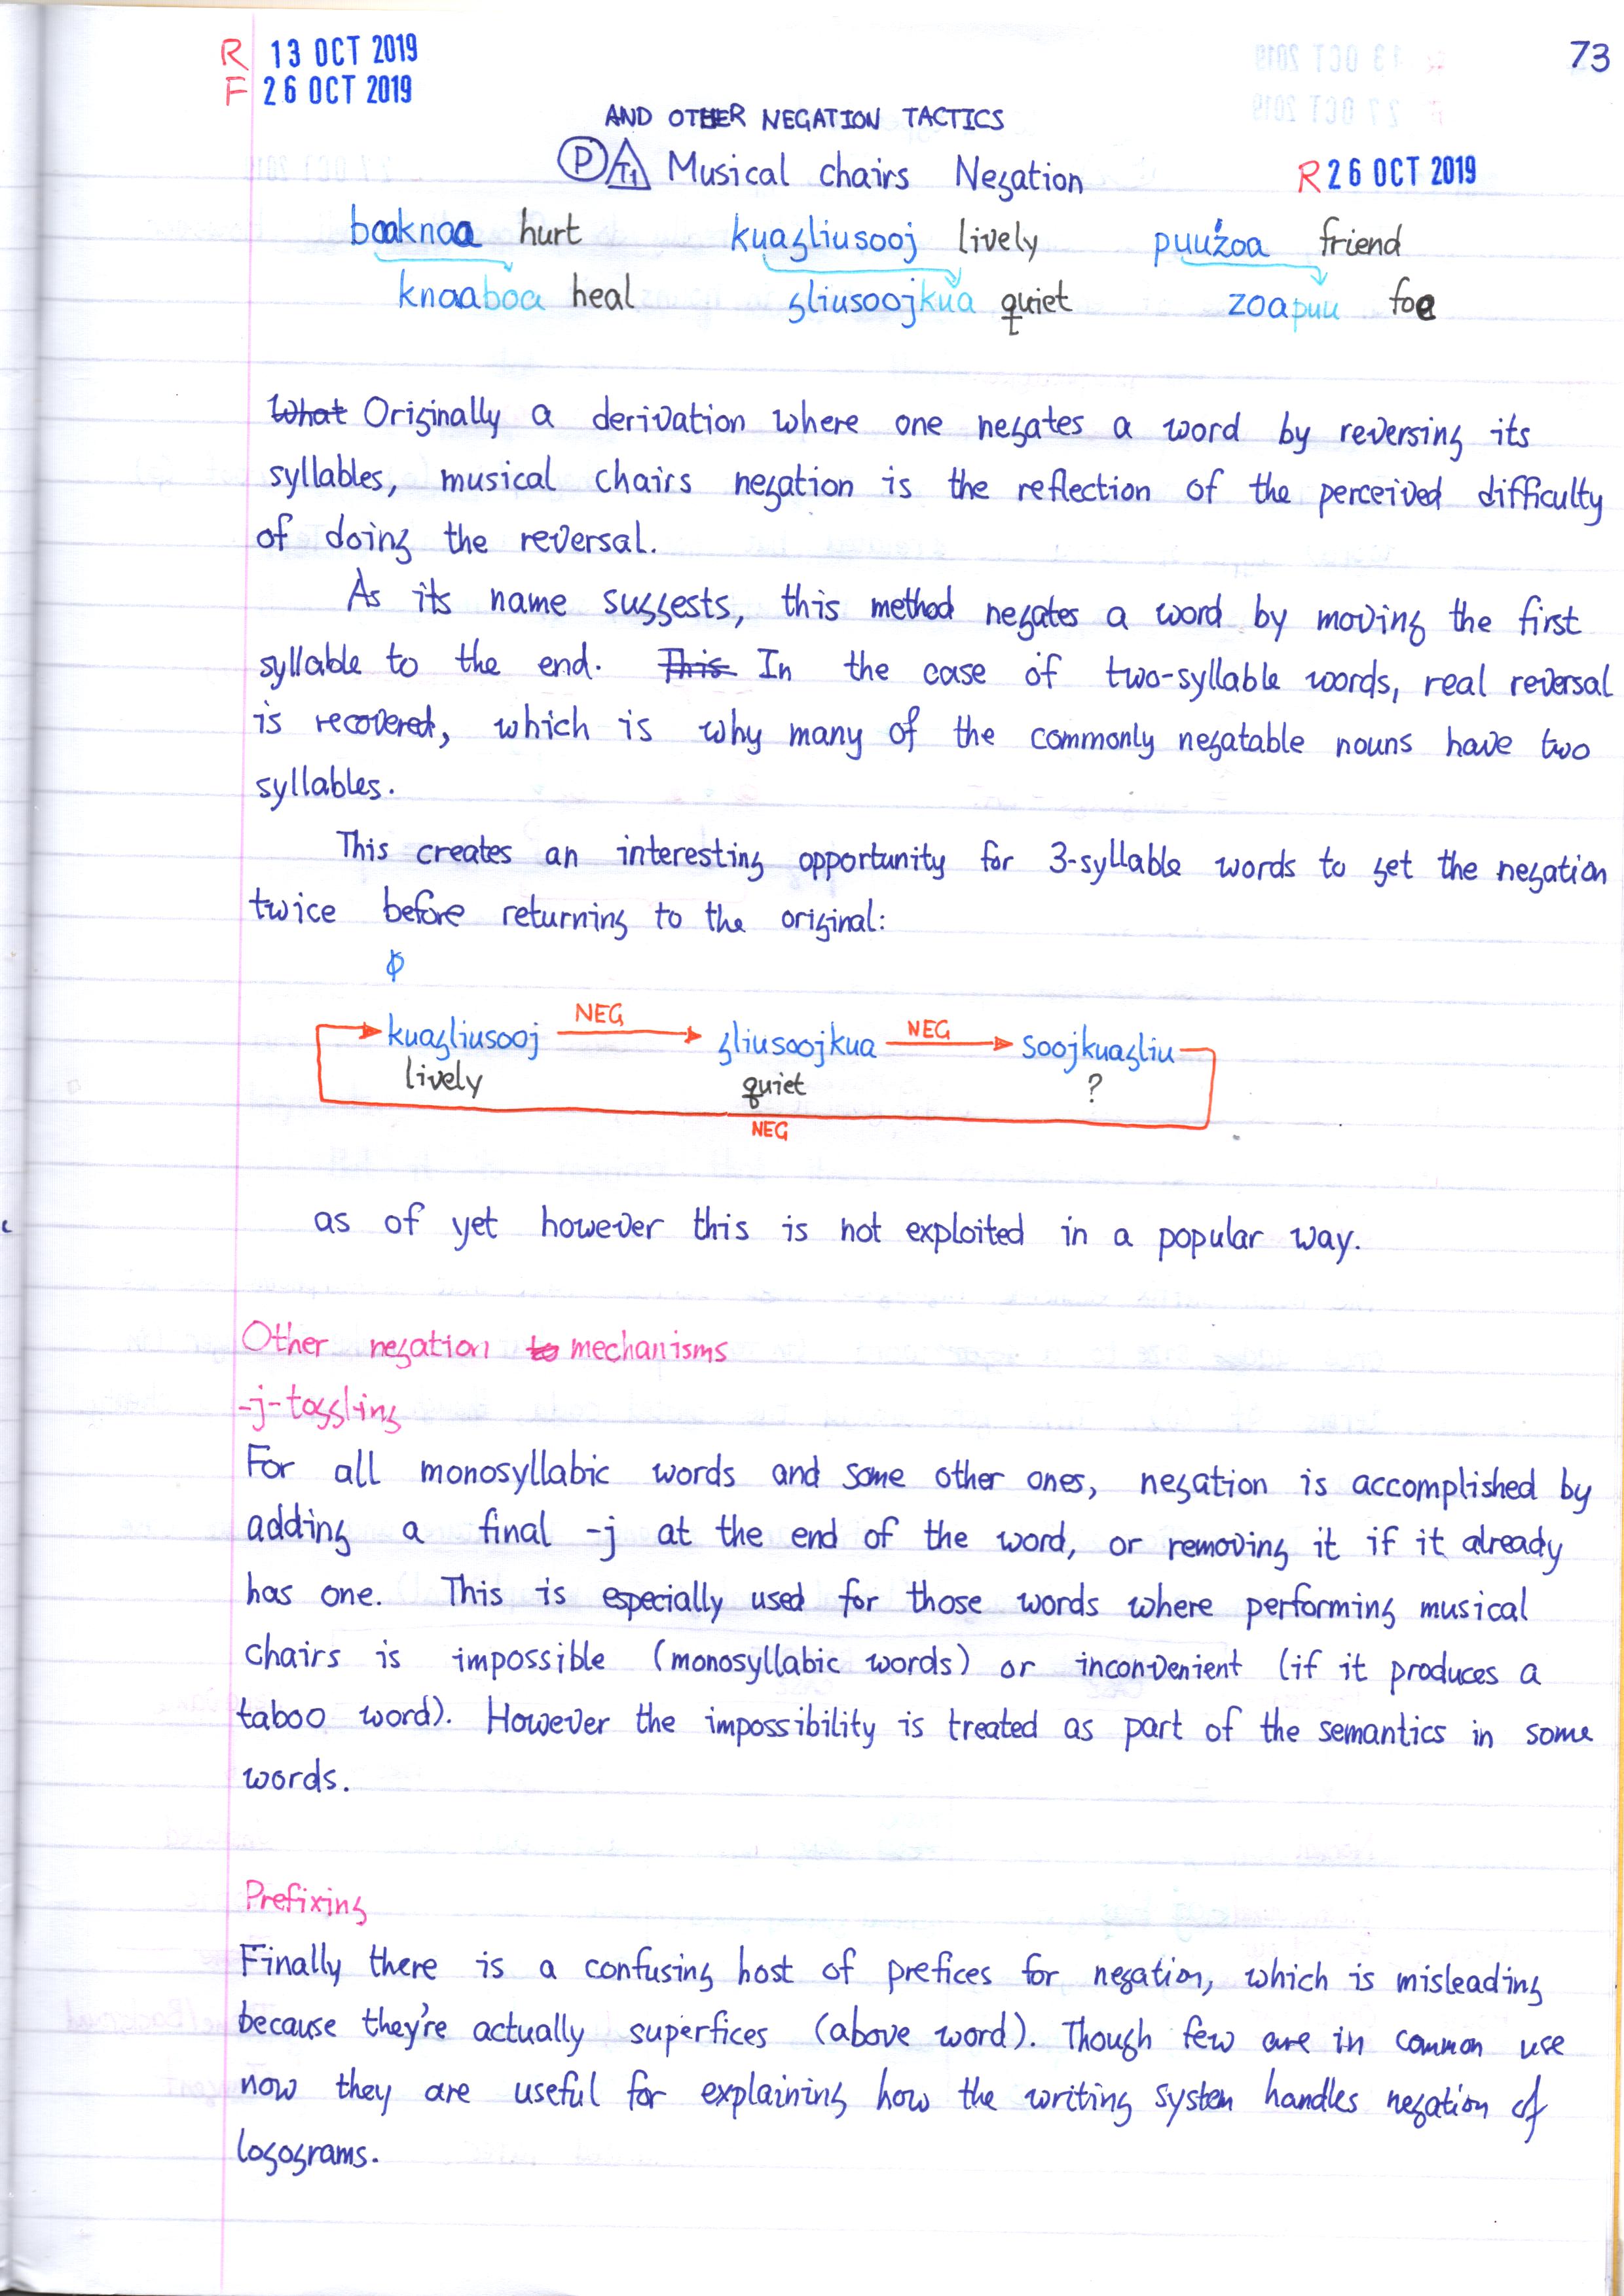 R 13 OCT 2019
F 26 OCT 2019
73
AND OTHER NEGATION TACTICS
P T1 Musical chairs Negation
R 26 OCT 2019
baaknaa hurt kuagliusooj lively puuźoa friend
knaaboa heal gliusoojkua quiet zoapuu foe
What Originally a derivation where one negates a word by reversing its
syllables, musical chairs negation is the reflection of the perceived difficulty
of doing the reversal.
As its name suggests, this method negates a word by moving the first
syllable to the end. This In the case of two-syllable words, real reversal
is recovered, which is why many of the commonly negatable nouns have two
syllables.
This creates an interesting opportunity for 3-syllable words to get the negation
twice before returning to the original:
ϕ
kuagliusooj NEG gliusoojkua NEG soojkuagliu
lively quiet ?
NEG
as of yet however this is not exploited in a popular way.
Other negation to mechanisms
-j-toggling
For all monosyllabic words and some other ones, negation is accomplished by
adding a final -j at the end of the word, or removing it if it already
has one. This is especially used for those words where performing musical
chairs is impossible (monosyllabic words) or inconvenient (if it produces a
taboo word). However the impossibility is treated as part of the semantics in some
words.
Prefixing
Finally there is a confusing host of prefices for negation, which is misleading
because they're actually superfices (above word). Though few are in common use
now they are useful for explaining how the writing system handles negation of
logograms.